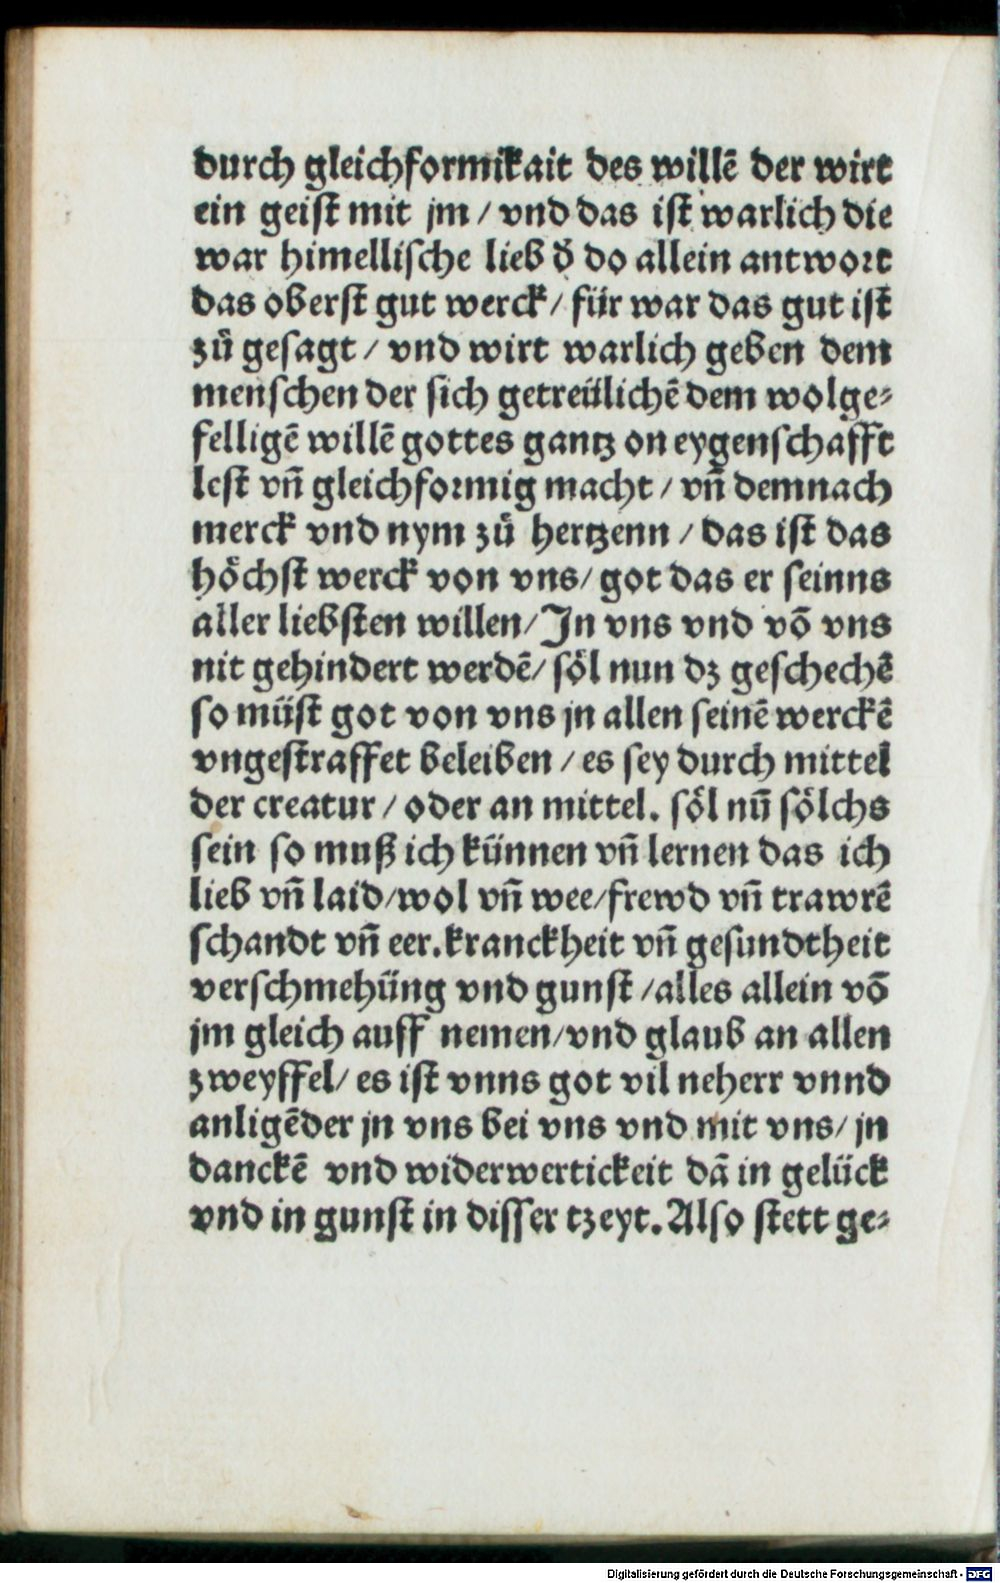 durch gleichformikait des willē der wirt
ein geist mit jm / vnd das ist warlich die
war himellische lieb d̄ do allein antwort
das oberst gut werck / für war das gut ist
zů gesagt / vnd wirt warlich geben dem
menschen der sich getreülichē dem wolge⸗
felligē willē gottes gantz on eygenschafft
lest vn̄ gleichformig macht / vn̄ demnach
merck vnd nym zů hertzenn / das ist das
höchst werck von vns / got das er seinns
aller liebsten willen / Jn vns vnd vō vns
nit gehindert werdē / söl nun dz geschechē
so müst got von vns jn allen seinē werckē
vngestraffet beleiben / es sey durch mittel
der creatur / oder an mittel. söl nū sölchs
sein so muß ich künnen vn̄ lernen das ich
lieb vn̄ laid / wol vn̄ wee / frewd vn̄ trawrē
schandt vn̄ eer. kranckheit vn̄ gesundtheit
verschmehüng vnd gunst / alles allein vō
jm gleich auff nemen / vnd glaub an allen
zweyffel / es ist vnns got vil neherr vnnd
anligēder jn vns bei vns vnd mit vns / jn
danckē vnd widerwertickeit dā in gelück
vnd in gunst in disser tzeyt. Also stett ge⸗
Digitalisierung gefördert durch die Deutsche Forschungsgemeinschaft - DFG